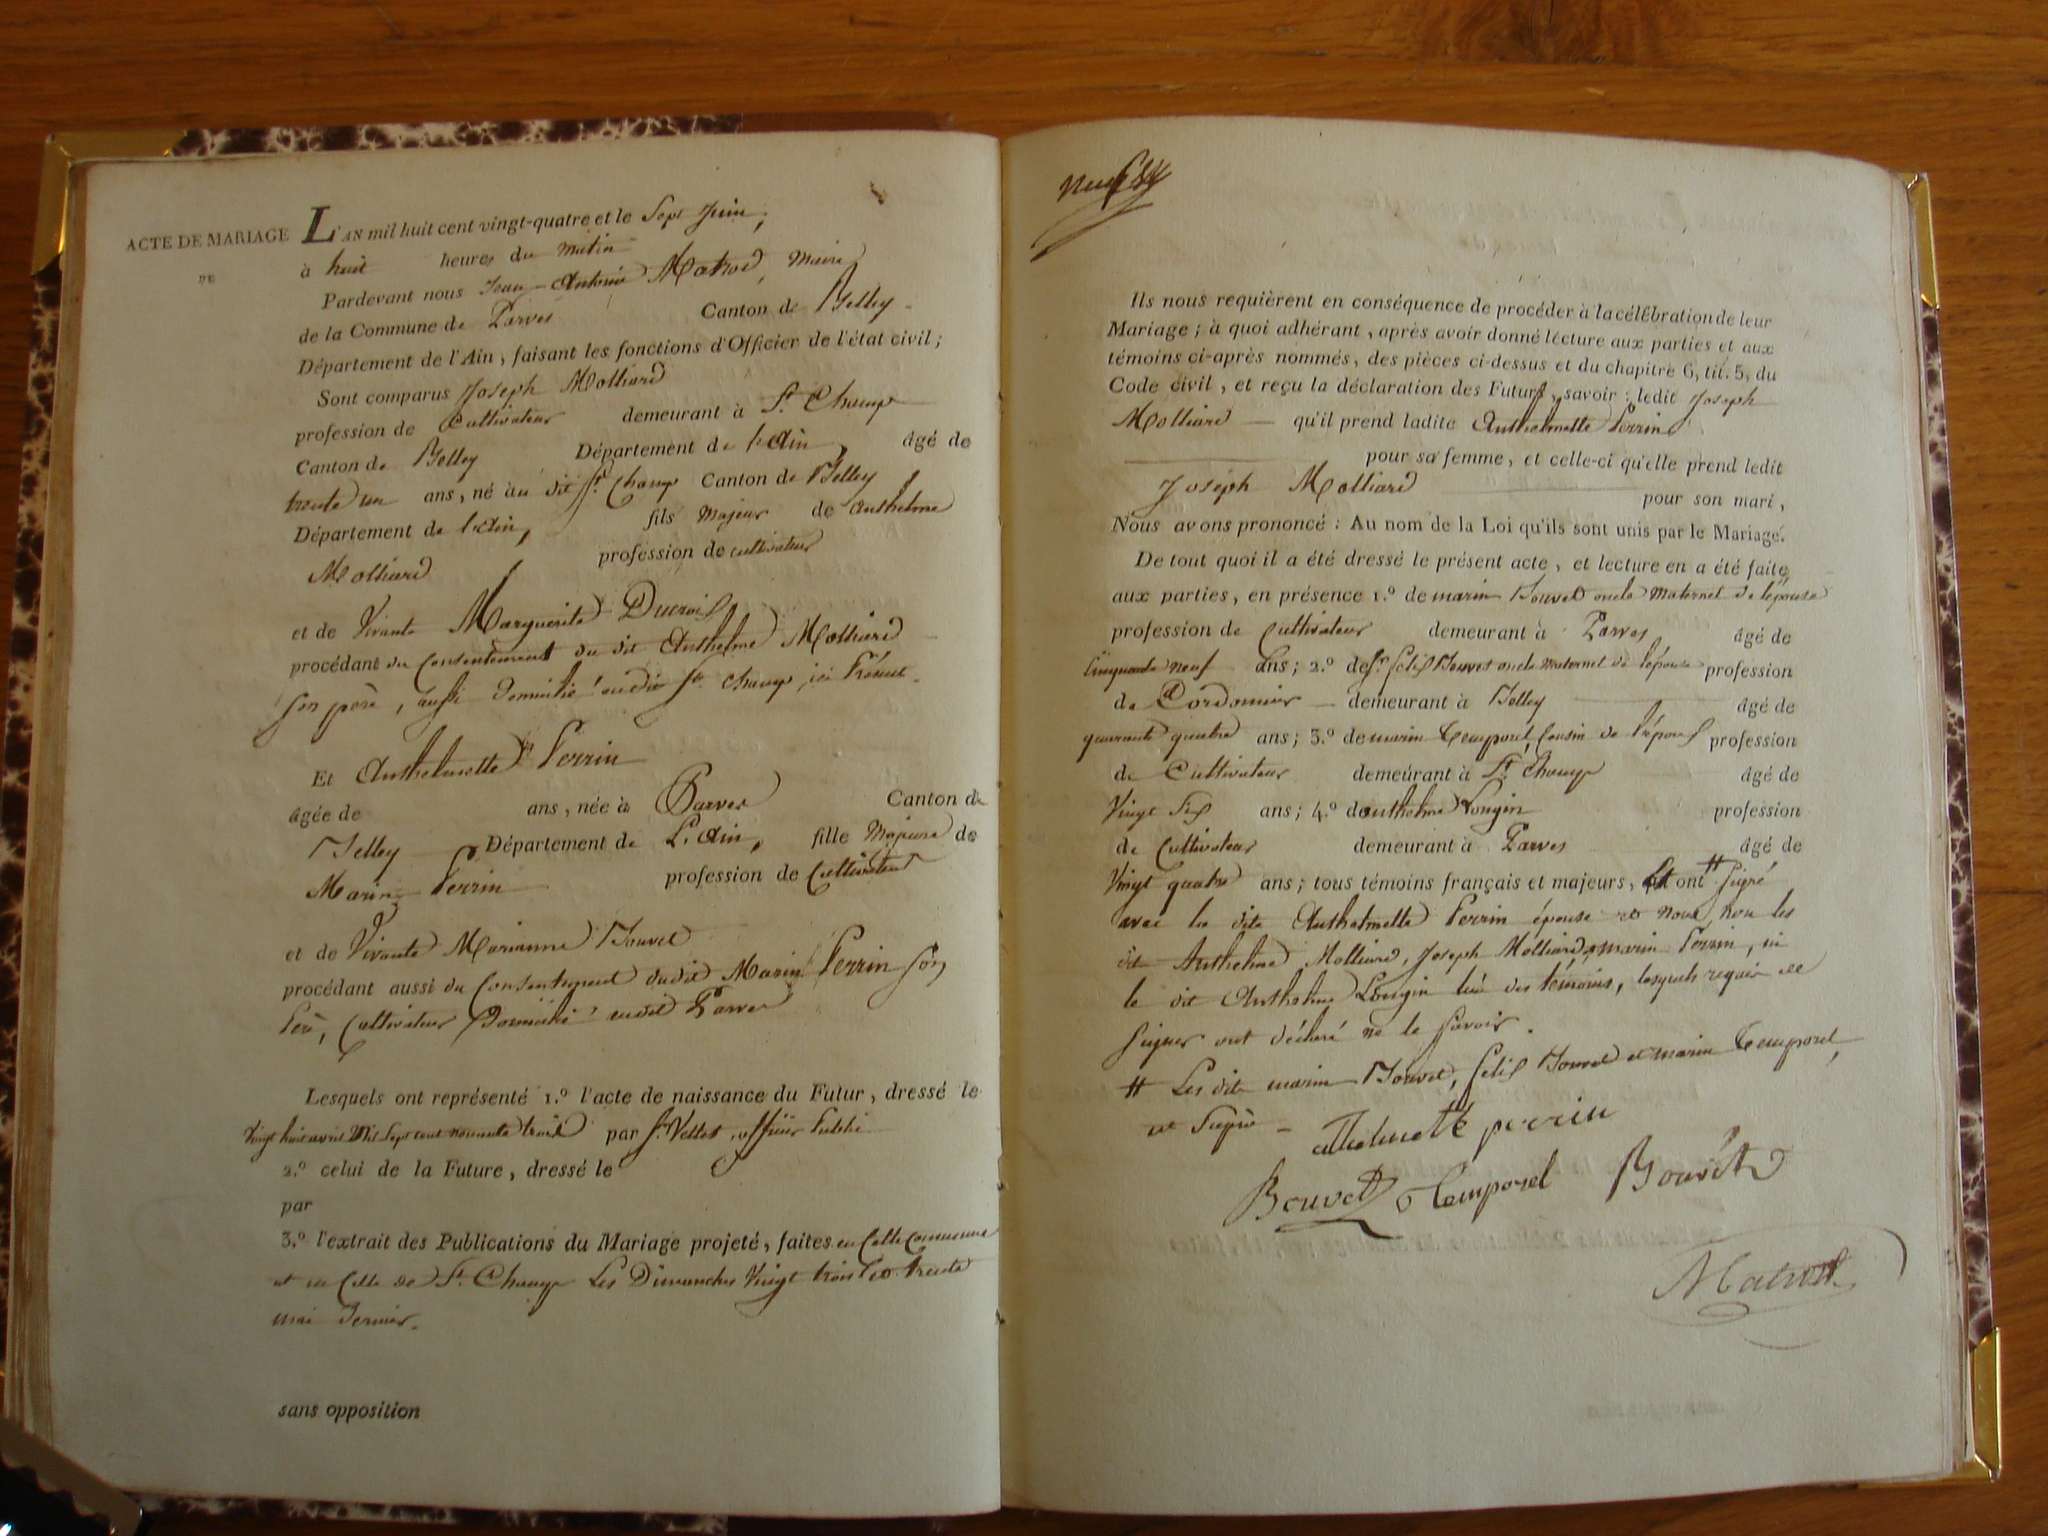 ACTE DE MARIAGE
DE
L'AN mil huit cent vingt-quatre et le Sept Juin,
à huit heures du matin
Pardevant nous Jean Antoine Matrod, Maire
de la Commune de Parves Canton de Belley
Département de l'Ain, faisant les fonctions d'Officier de l'état civil;
Sont comparus Joseph Molliard
profession de Cultivateur demeurant à St. Champ
Canton de Belley Département de l'Ain, âgé de
trente un ans, né au dit St. Champ Canton de Belley
Département de l'Ain, fils Majeur de Anthelme
Molliard profession de cultivateur
et de Vivante Marguerite Ducroi
procédant du Consentement du dit Anthelme Molliard
son père, aussi domicilié audit St. Champ, ici Présent.
Et Anthelmette Perrin
âgée de ans, née à Parves Canton de
Belley Département de L'Ain, fille Majeure de
Marin Perrin profession de Cultivateur
et de Vivante Marianne Bouvet
procédant aussi du Consentement dudit Marin Perrin son
Père, Cultivateur Domicilié audit Parves
Lesquels ont représenté 1.º l'acte de naissance du Futur, dressé le
Vingt huit avril Mil Sept cent nonante trois par Sr. Vettet, officier Public
2.º celui de la Future, dressé le
par
3.º l'extrait des Publications du Mariage projeté, faites en Cette Commune
et en Celle de St. Champ Les Dimanches Vingt trois et trente
mai dernier.
sans opposition
neuf
Ils nous requièrent en conséquence de procéder à la célébration de leur
Mariage; à quoi adhérant, après avoir donné lecture aux parties et aux
témoins ci-après nommés, des pièces ci-dessus et du chapitre 6, tit. 5, du
Code civil, et reçu la déclaration des Futurs, savoir: ledit Joseph
Molliard qu'il prend ladite Anthelmette Perrin
pour sa femme, et celle-ci qu'elle prend ledit
Joseph Molliard pour son mari,
Nous avons prononcé: Au nom de la Loi qu'ils sont unis par le Mariage.
De tout quoi il a été dressé le présent acte, et lecture en a été faite
aux parties, en présence 1.º de marin Bouvet oncle Maternel de l'épouse
profession de Cultivateur demeurant à Parves âgé de
Cinquante neuf ans; 2.º de Sr. felix Bouvet oncle maternel de l'épouse profession
de Cordonnier demeurant à Belley âgé de
quarante quatre ans; 3.º de marin Temporel, Cousin de l'époux profession
de Cultivateur demeurant à St. Champ âgé de
Vingt Six ans; 4.º de anthelme Longin profession
de Cultivateur demeurant à Parves âgé de
Vingt quatre ans; tous témoins français et majeurs, ont # Signé
avec la dite Anthelmette Perrin épouse et nous, non les
dit Anthelme Molliard, Joseph Molliard, marin Perrin, ni
le dit Anthelme Longin l'un des témoins, lesquels requis de
Signer ont déclaré ne le Savoir.
# Les dits marin Bouvet, felix Bouvet et marin Temporel,
antelmette perrin
Bouvet Temporel Bouvet
Matrod